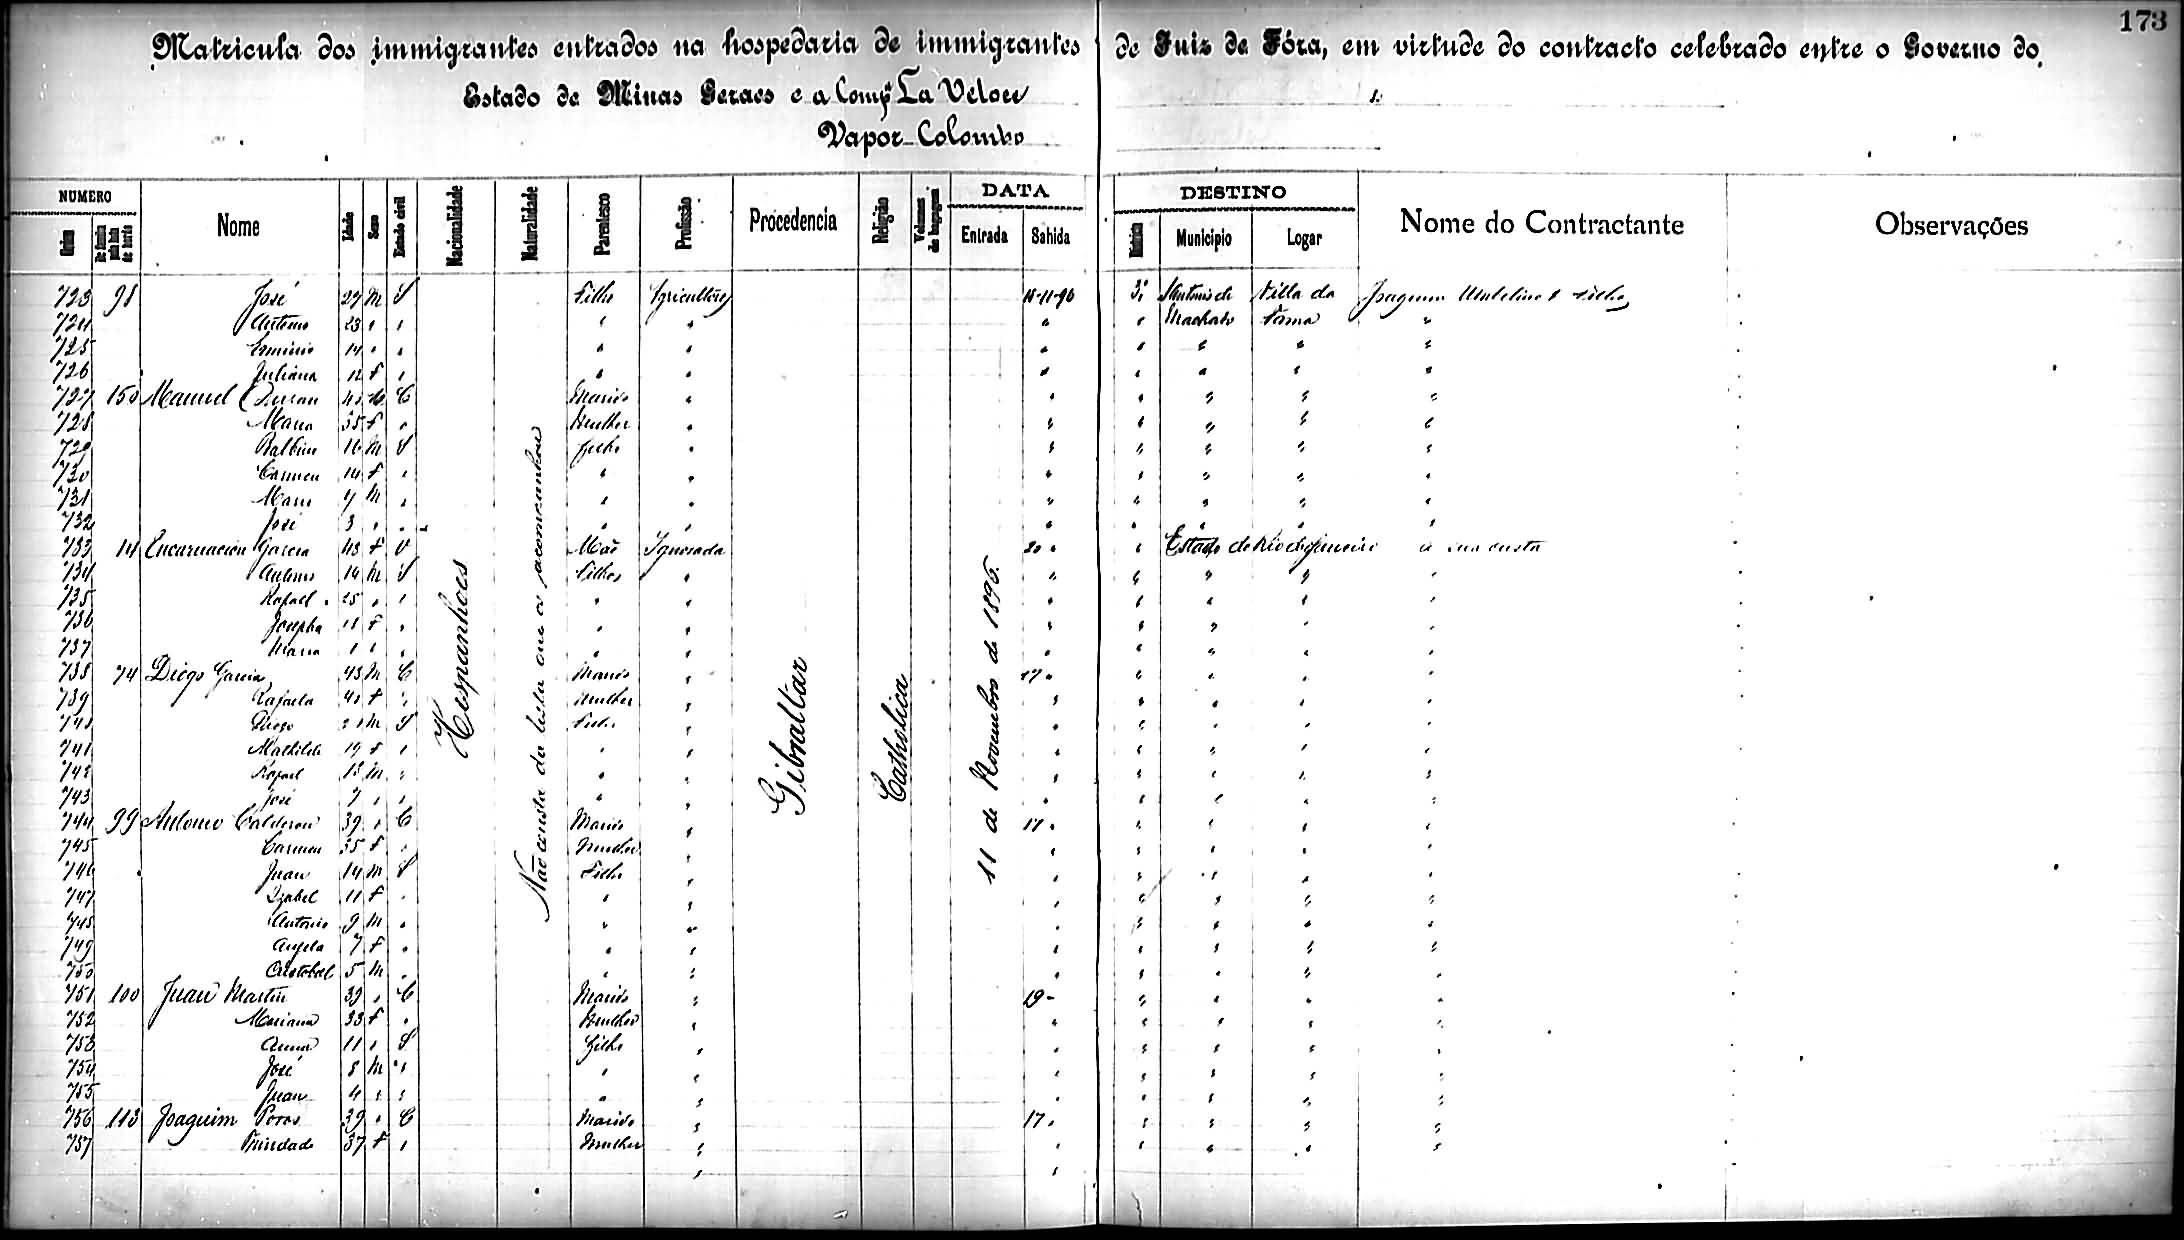 173
Matricula dos immigrantes entrados na hospedaria de immigrantes de Juiz de Fóra, em virtude do contracto celebrado entre o Governo do
Estado de Minas Geraes e a Comp.ª La Veloce
Vapor Colombo
NUMERO Nome Idade Sexo Estado civil Nacionalidade Naturalidade Parentesco Profissão Procedencia Religião Volumes de bagagem DATA DESTINO Nome do Contractante Observações
Ordem Entrada Sahida Districto Municipio Logar
Hespanhoes
Não consta da lista que os acompanhou
Gibraltar
Catholica
11 de Novembro de 1896.
723 98 José 27 M S Filho Agricultores 15-11-96 3º S Antonio do Villa da Joaquim & Filho
724 Antonio 23 " " " " " " Machado Fama "
725 14 " " " " " " " " "
726 Juliana 12 F " " " " " " " "
727 150 Manuel Duran 40 M C Marido " " " " " "
728 Maria 35 F " Mulher " " " " " "
729 Balbino 16 M S Filho " " " " " "
730 Carmen 14 F " " " " " " " "
731 7 M " " " " " " " "
732 José 3 " " " " " " " " "
733 14 Encarnacion Garcia 43 F V Mãe Ignorada 20 " " Estado do Rio de Janeiro a sua custa
734 Antonio M S Filhos " " " " " "
735 Rafael 15 " " " " " " " " "
736 Josepha 11 F " " " " " " " "
737 Maria 1 " " " " " " " " "
738 74 Diego Garcia 43 M C Marido " 17 " " " " "
739 Rafaela 40 F " Mulher " " " " " "
740 Diego M S Filho " " " " " "
741 Mathilde 19 F " " " " " " " "
742 Rafael M " " " " " " " "
743 José 7 " " " " " " " " "
744 99 Antonio Calderon 39 " C Marido " 17 " " " " "
745 Carmen 35 F " Mulher " " " " " "
746 Juan 14 M S Filho " " " " " "
747 Izabel 11 F " " " " " " " "
748 Antonio 9 M " " " " " " " "
749 Angela 7 F " " " " " " " "
750 Cristobal 5 M " " " " " " " "
751 100 Juan Martin 39 " C Marido " 19 " " " " "
752 Mariana 33 F " Mulher " " " " " "
753 Anna 11 " S Filho " " " " " "
754 José 8 M " " " " " " " "
755 Juan 4 " " " " " " " " "
756 113 Joaquim Poros 39 " C Marido " 17 " " " " "
757 Trindade 37 F " Mulher " " " " " "